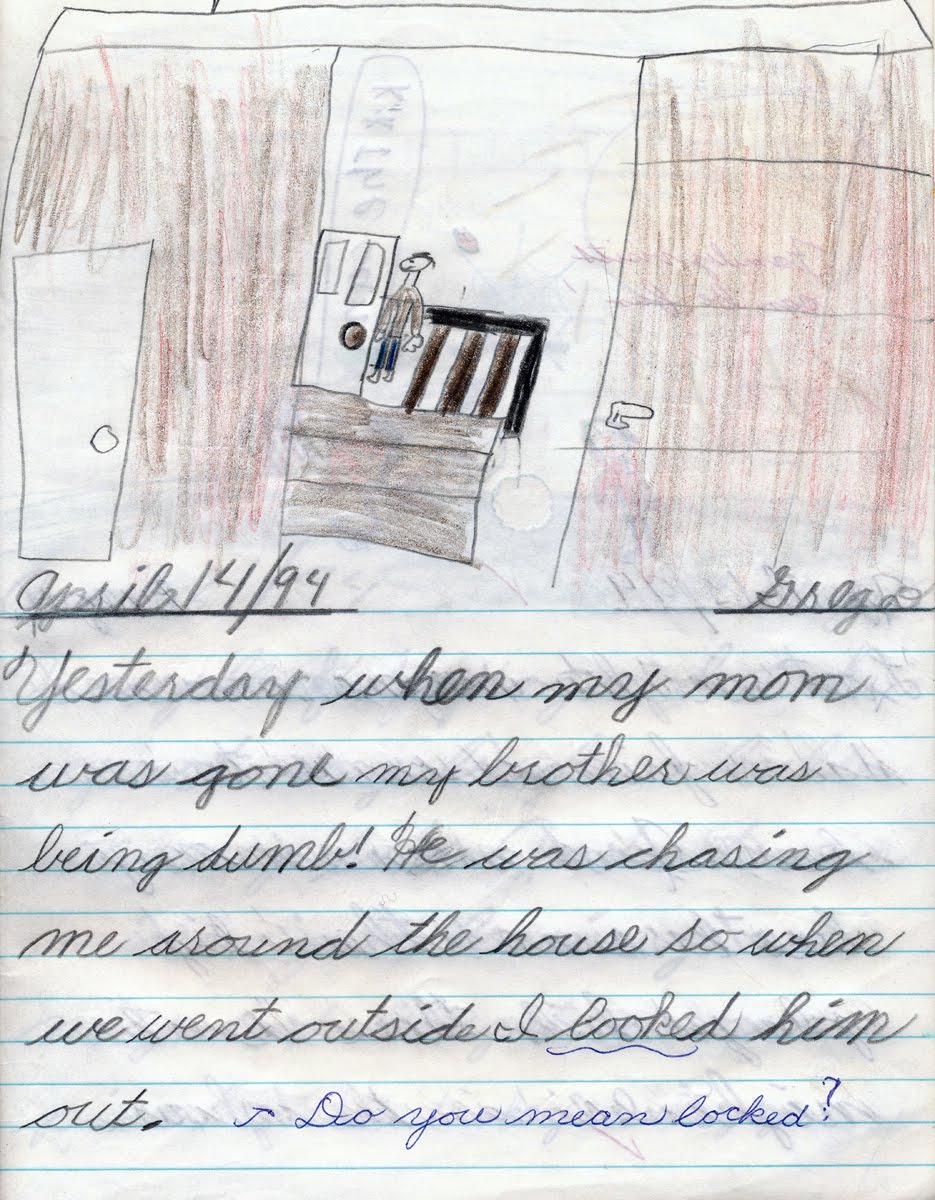 April 14/94 Greg
Yesterday when my mom
was gone my brother was
being dumb! He was chasing
me around the house so when
we went outside I looked him
out. Do you mean locked?